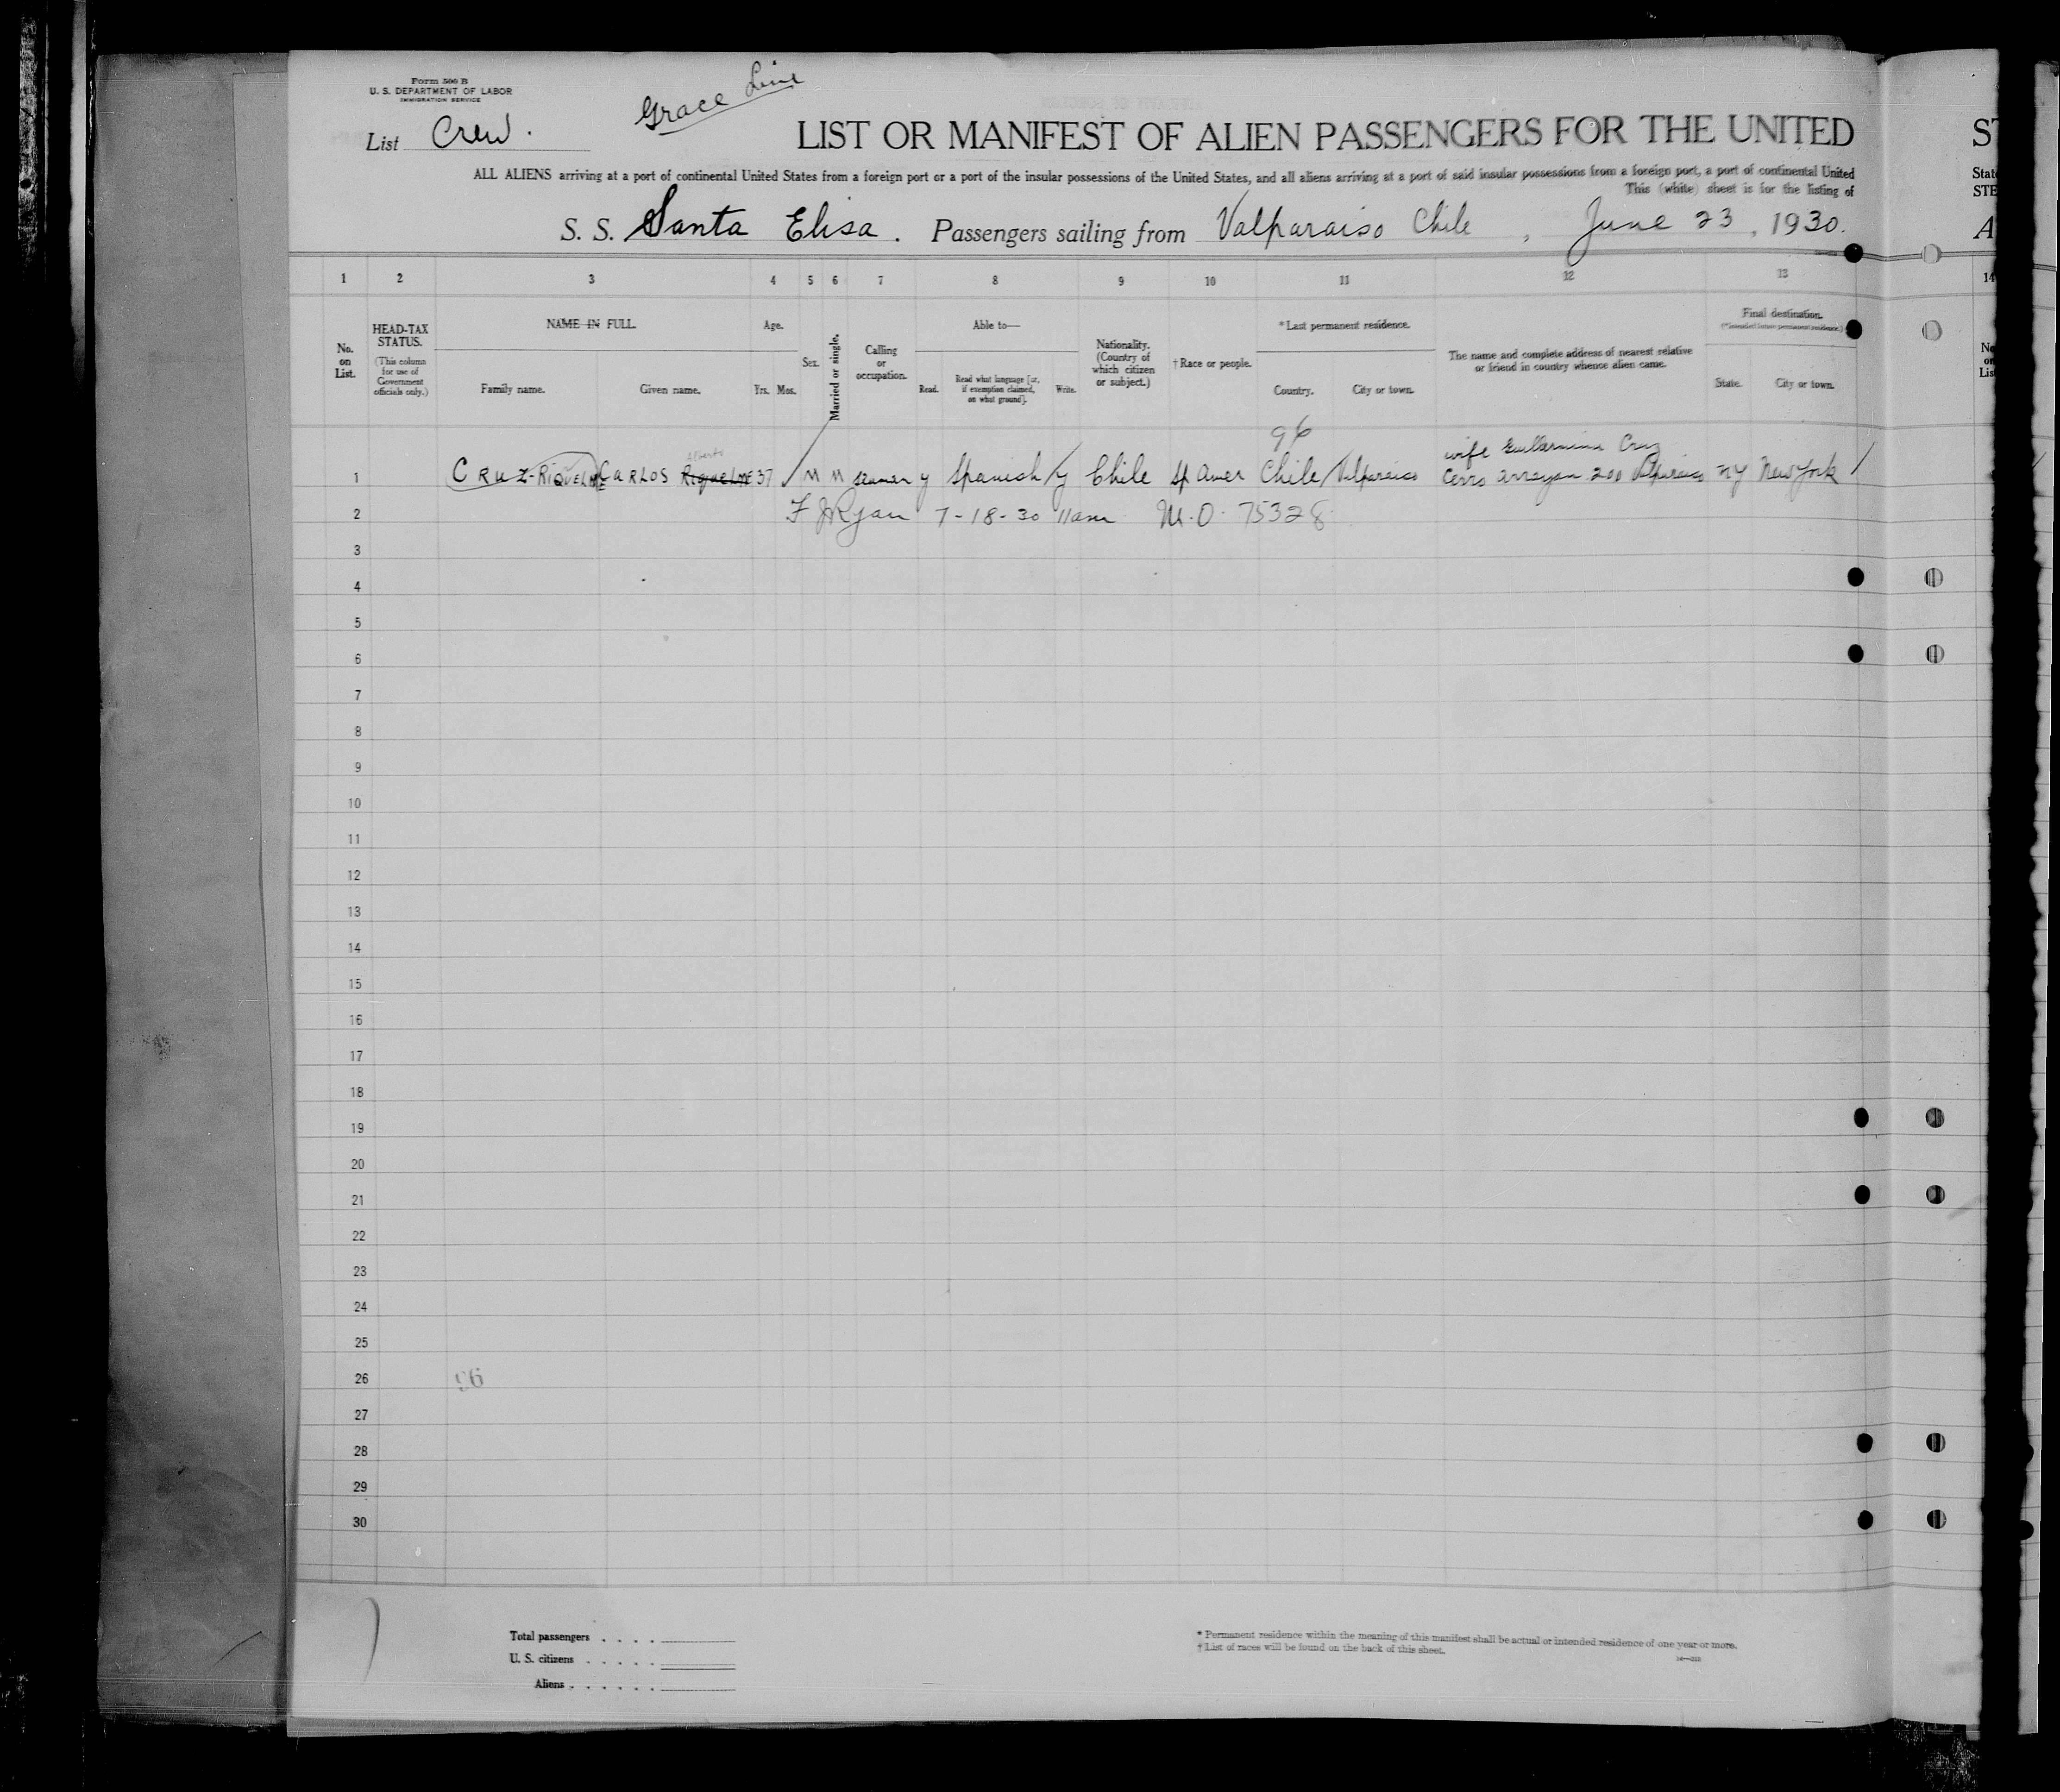 Form 500 B
U. S. DEPARTMENT OF LABOR
IMMIGRATION SERVICE
List Crew.
Grace Line
LIST OR MANIFEST OF ALIEN PASSENGERS FOR THE UNITED
ALL ALIENS arriving at a port of continental United States from a foreign port or a port of the insular possessions of the United States, and all aliens arriving at a port of said insular possessions from a foreign port, a port of continental United
This (white) sheet is for the listing of
S. S. Santa Elisa. Passengers sailing from Valparaiso Chile, June 23, 1930.
ST
State
STE
A
1 2 3 4 5 6 7 8 9 10 11 12 13 14
No. on List.
HEAD-TAX STATUS.
(This column for use of Government officials only.)
NAME IN FULL.
Family name. Given name.
Age.
Yrs. Mos.
Sex.
Married or single.
Calling or occupation.
Able to—
Read. Read what language [or, if exemption claimed, on what ground]. Write.
Nationality. (Country of which citizen or subject.)
†Race or people.
*Last permanent residence.
Country. City or town.
The name and complete address of nearest relative or friend in country whence alien came.
Final destination.
(*Intended future permanent residence.)
State. City or town.
No on List
96
Alberto
wife Guillermina Cruz
1 CRUZ-RIQUELME CARLOS Riquelme 37 M M seaman y Spanish y Chile Sp Amer Chile Valparaiso Cerro Arrayan 200 Valparaiso NY New York
2 F J Ryan 7-18-30 11am M.O. 75328
3
4
5
6
7
8
9
10
11
12
13
14
15
16
17
18
19
20
21
22
23
24
25
26 96
27
28
29
30
Total passengers . . . .
U. S. citizens . . . . .
Aliens . . . . . .
* Permanent residence within the meaning of this manifest shall be actual or intended residence of one year or more.
† List of races will be found on the back of this sheet.